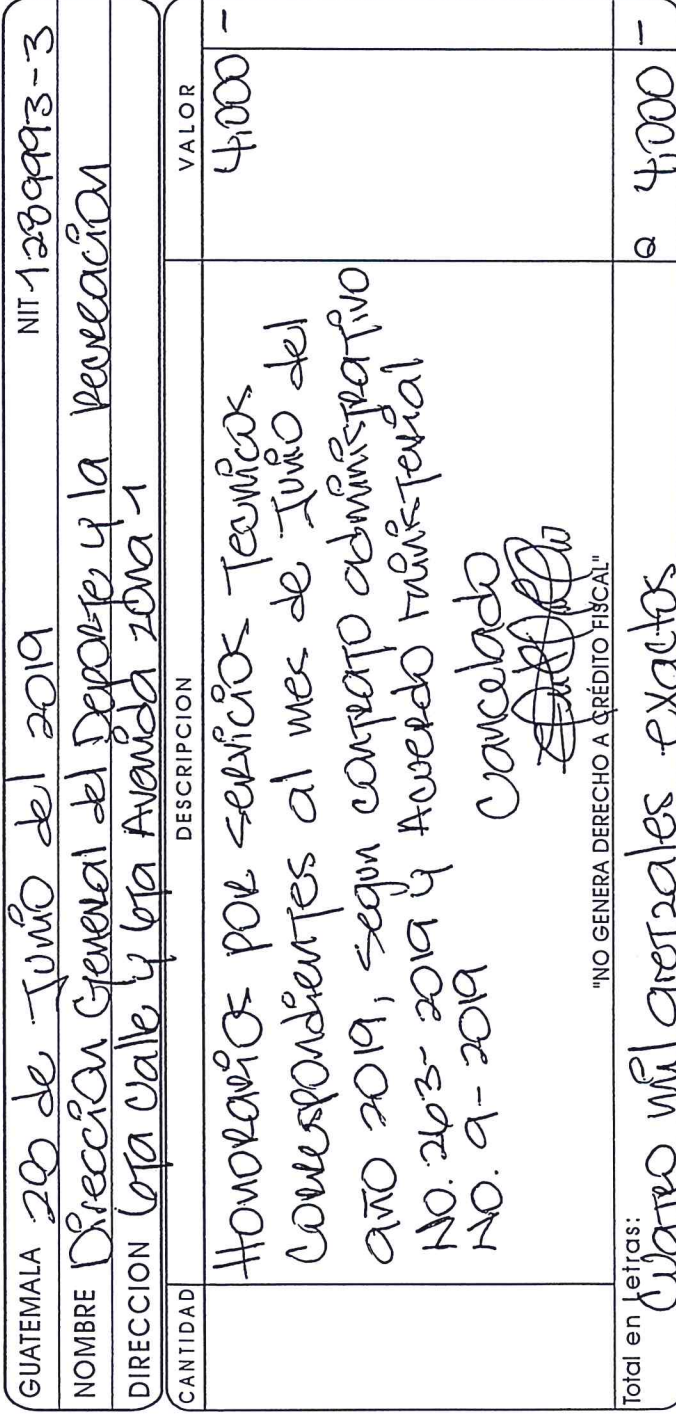 GUATEMALA 28 de Junio del 2019 NIT 1289993-3
NOMBRE Dirección General del Deporte y la Recreación
DIRECCION 6ta Calle y 6ta Avenida zona 1
CANTIDAD DESCRIPCION VALOR
Honorarios por servicios Tecnicos 4,000 -
Correspondientes al mes de Junio del
año 2019, segun contrato administrativo
No. 263-2019 y Acuerdo ministerial
No. 9-2019
Cancelado
"NO GENERA DERECHO A CRÉDITO FISCAL"
Total en Letras:
Cuatro mil quetzales exactos Q 4,000 -